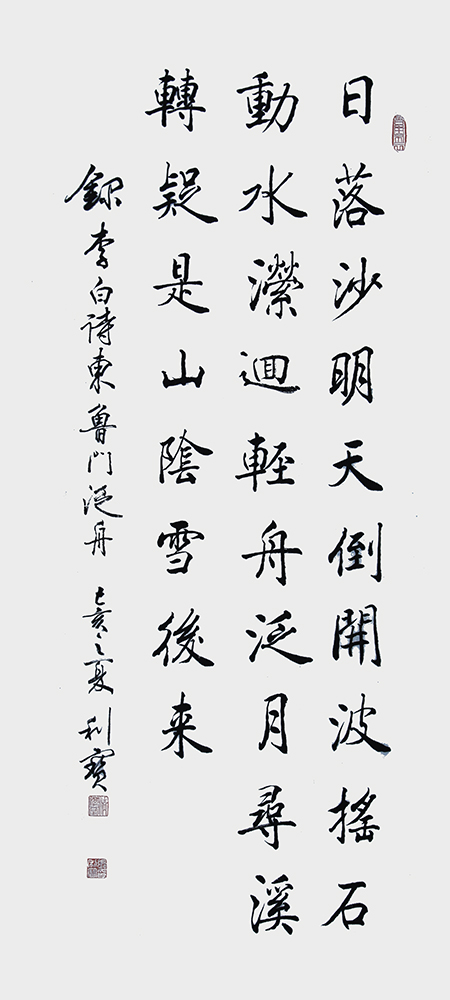 日落沙明天倒開波搖石
動水瀠迴輕舟泛月尋溪
轉疑是山陰雪後来
錄李白詩東魯門泛舟 己亥之夏 利寳